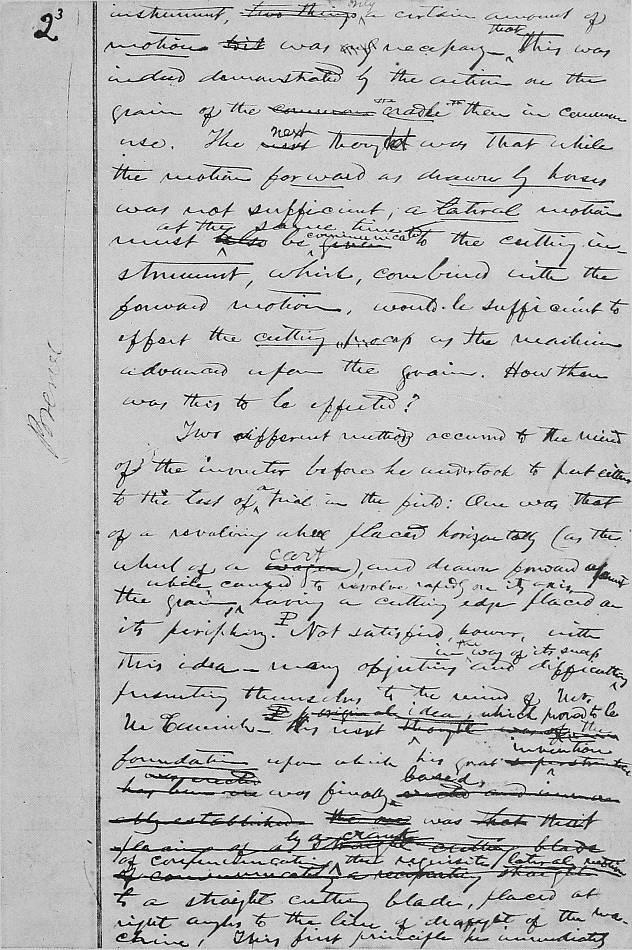 2³
instrument, two things, only a certain amount of
motion was necessary — that this was
indeed demonstrated by the action on the
grain of the common "cradle" then in common
use. The next thought was that while
the motion forward as drawn by horses
was not sufficient, a lateral motion
at the same time communicated
must also be given to the cutting in-
strument, which, combined with the
forward motion, would be sufficient to
effect the cutting process as the machine
advanced upon the grain. How then
was this to be effected?
Two different methods occurred to the mind
of the inventor before he undertook to put either
to the test of a trial in the field: One was that
of a revolving wheel placed horizontally (as the
cart
wheel of a wagon), and drawn forward against
while caused to revolve rapidly on its axis
the grain, having a cutting edge placed on
its periphery. P Not satisfied, however, with
in the way of its success
this idea — many objections and difficulties
presenting themselves to the mind of Mr.
original idea, which proved to be
McCormick — his next thought was the
invention
foundation upon which his great
based,
was finally
established was that
placing of a straight cutting blade
by a crank
of communicating the requisite lateral motion
of communicating a reciprocating straight
to a straight cutting blade, placed at
right angles to the line of draught of the ma-
chine. This first principle he immediately